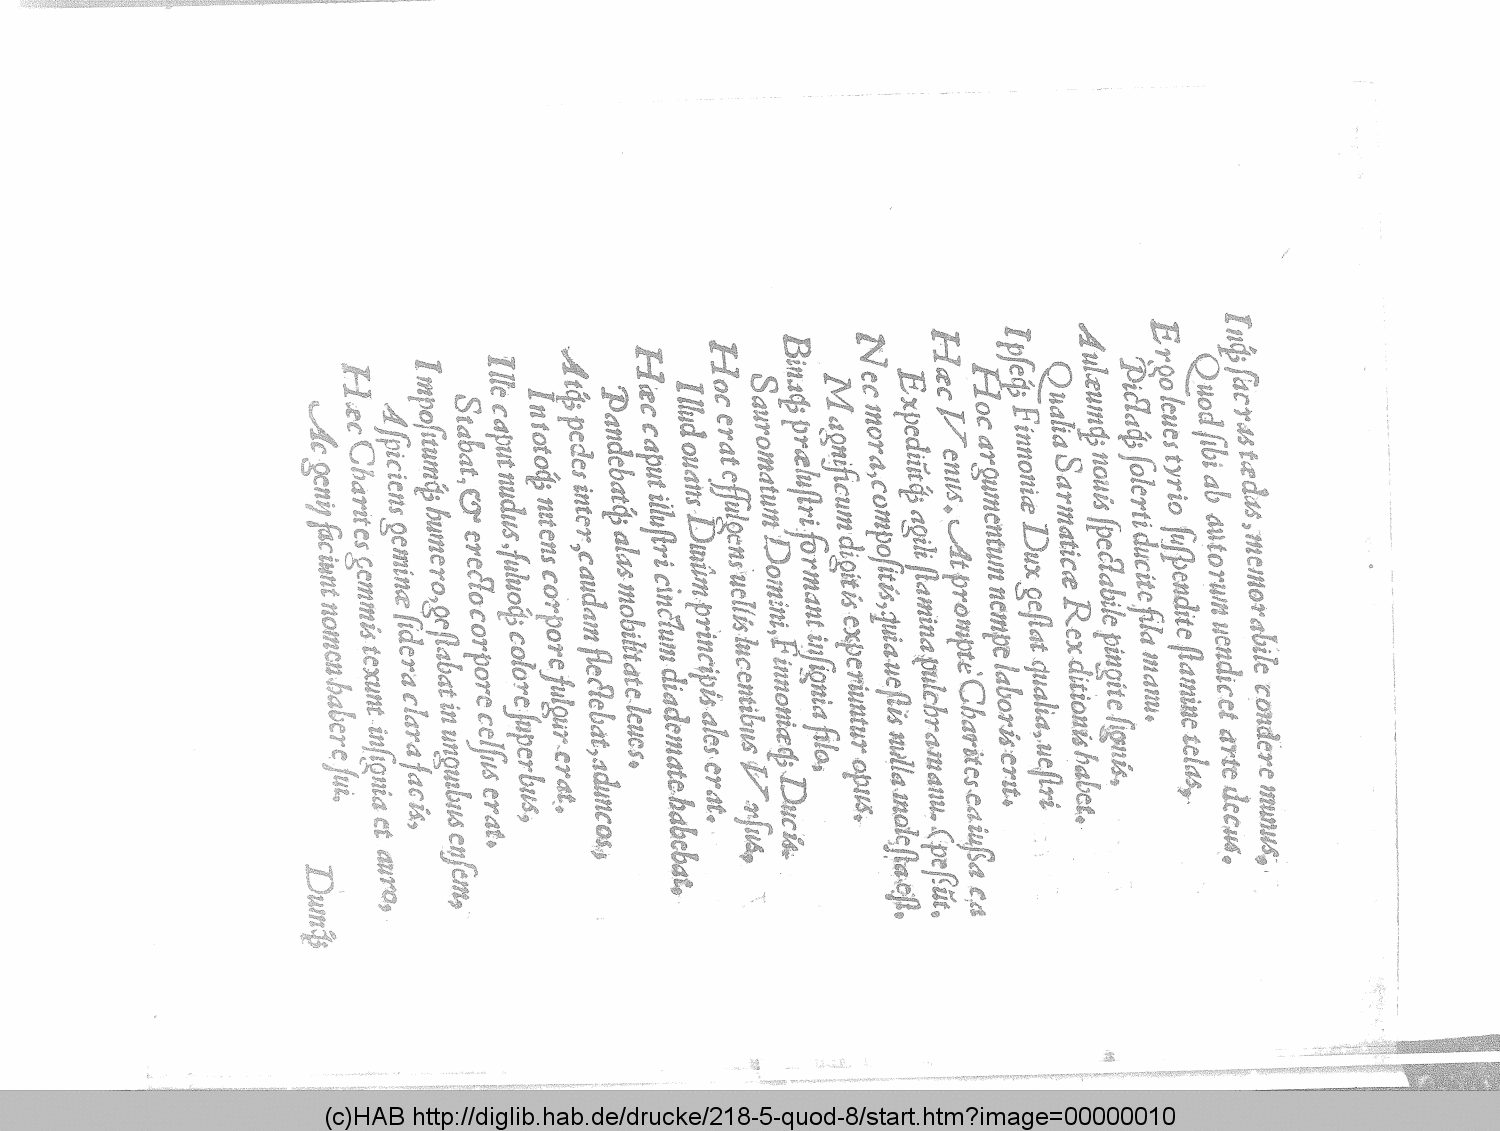 Inq́; ſacras tædas, memorabile condere munus,
Quod ſibi ab autorum uendicet arte decus.
Ergo leues tyrio ſuſpendite ſtamine telas,
Pictaq́; ſolerti ducite fila manu.
Aulæumq́; nouis ſpectabile pingite ſignis,
Qualia Sarmaticæ Rex ditionis habet.
Ipſeq́; Finnoniæ Dux geſtat qualia, ueſtri
Hoc argumentum nempe laboris erit.
Hæc Venus. At promptè Charites ea iuſſa ca
Expediũtq́; agili ſtamina pulchra manu. (peſſũt.
Nec mora, compoſitis, quia ueſtis nulla moleſta eſt.
Magnificum digitis experiuntur opus.
Binaq́; præluſtri formant inſignia filo,
Sauromatum Domini, Finnoniæq́; Ducis.
Hoc erat effulgens uellis lucentibus Vrſus,
Illud ouans Diuûm principis ales erat.
Hæc caput illuſtri cinctum diademate habebat.
Pandebatq́; alas mobilitate leues.
Atq́; pedes inter, caudam flectebat, aduncos,
In totoq́; nitens corpore fulgur erat.
Ille caput nudus, fuluoq́; colore ſuperbus,
Stabat, & erecto corpore celſus erat.
Impoſitumq́; humero, geſtabat in unguibus enſem,
Aſpiciens geminæ ſidera clara facis,
Hæc Charites gemmis texunt inſignia et auro,
Ac genij faciunt nomen habere ſui.
Dumq́;
(c)HAB http://diglib.hab.de/drucke/218-5-quod-8/start.htm?image=00000010